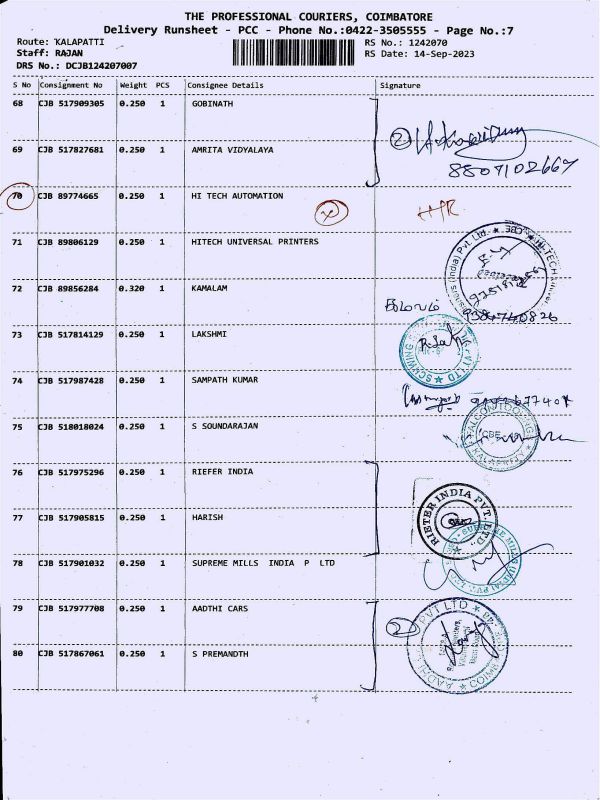 THE PROFESSIONAL COURIERS, COIMBATORE
Delivery Runsheet - PCC - Phone No.:0422-3505555 - Page No.:7
Route: KALAPATTI RS No.: 1242070
Staff: RAJAN RS Date: 14-Sep-2023
DRS No.: DCJB124207007
S No Consignment No Weight PCS Consignee Details Signature
68 CJB 517909305 0.250 1 GOBINATH
69 CJB 517827681 0.250 1 AMRITA VIDYALAYA
2
8807102667
70 CJB 89774665 0.250 1 HI TECH AUTOMATION
71 CJB 89806129 0.250 1 HITECH UNIVERSAL PRINTERS
72 CJB 89856284 0.320 1 KAMALAM
கமலம்
9384740826
73 CJB 517814129 0.250 1 LAKSHMI
74 CJB 517987428 0.250 1 SAMPATH KUMAR
75 CJB 518018024 0.250 1 S SOUNDARAJAN
CBE
76 CJB 517975296 0.250 1 RIEFER INDIA
RIETER INDIA PVT. LTD.
77 CJB 517905815 0.250 1 HARISH
78 CJB 517901032 0.250 1 SUPREME MILLS INDIA P LTD
79 CJB 517977708 0.250 1 AADTHI CARS
2
80 CJB 517867061 0.250 1 S PREMANDTH